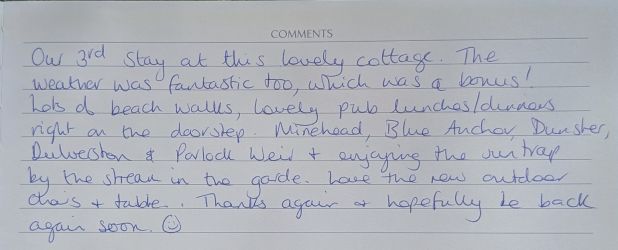 COMMENTS
Our 3rd stay at this lovely cottage. The
weather was fantastic too, which was a bonus!
Lots of beach walks, lovely pub lunches/dinners
right on the doorstep. Minehead, Blue Anchor, Dunster,
Dulverston & Porlock Weir + enjoying the suntrap
by the stream in the garde. Love the new outdoor
chairs + table. Thanks again + hopefully be back
again soon. ☺